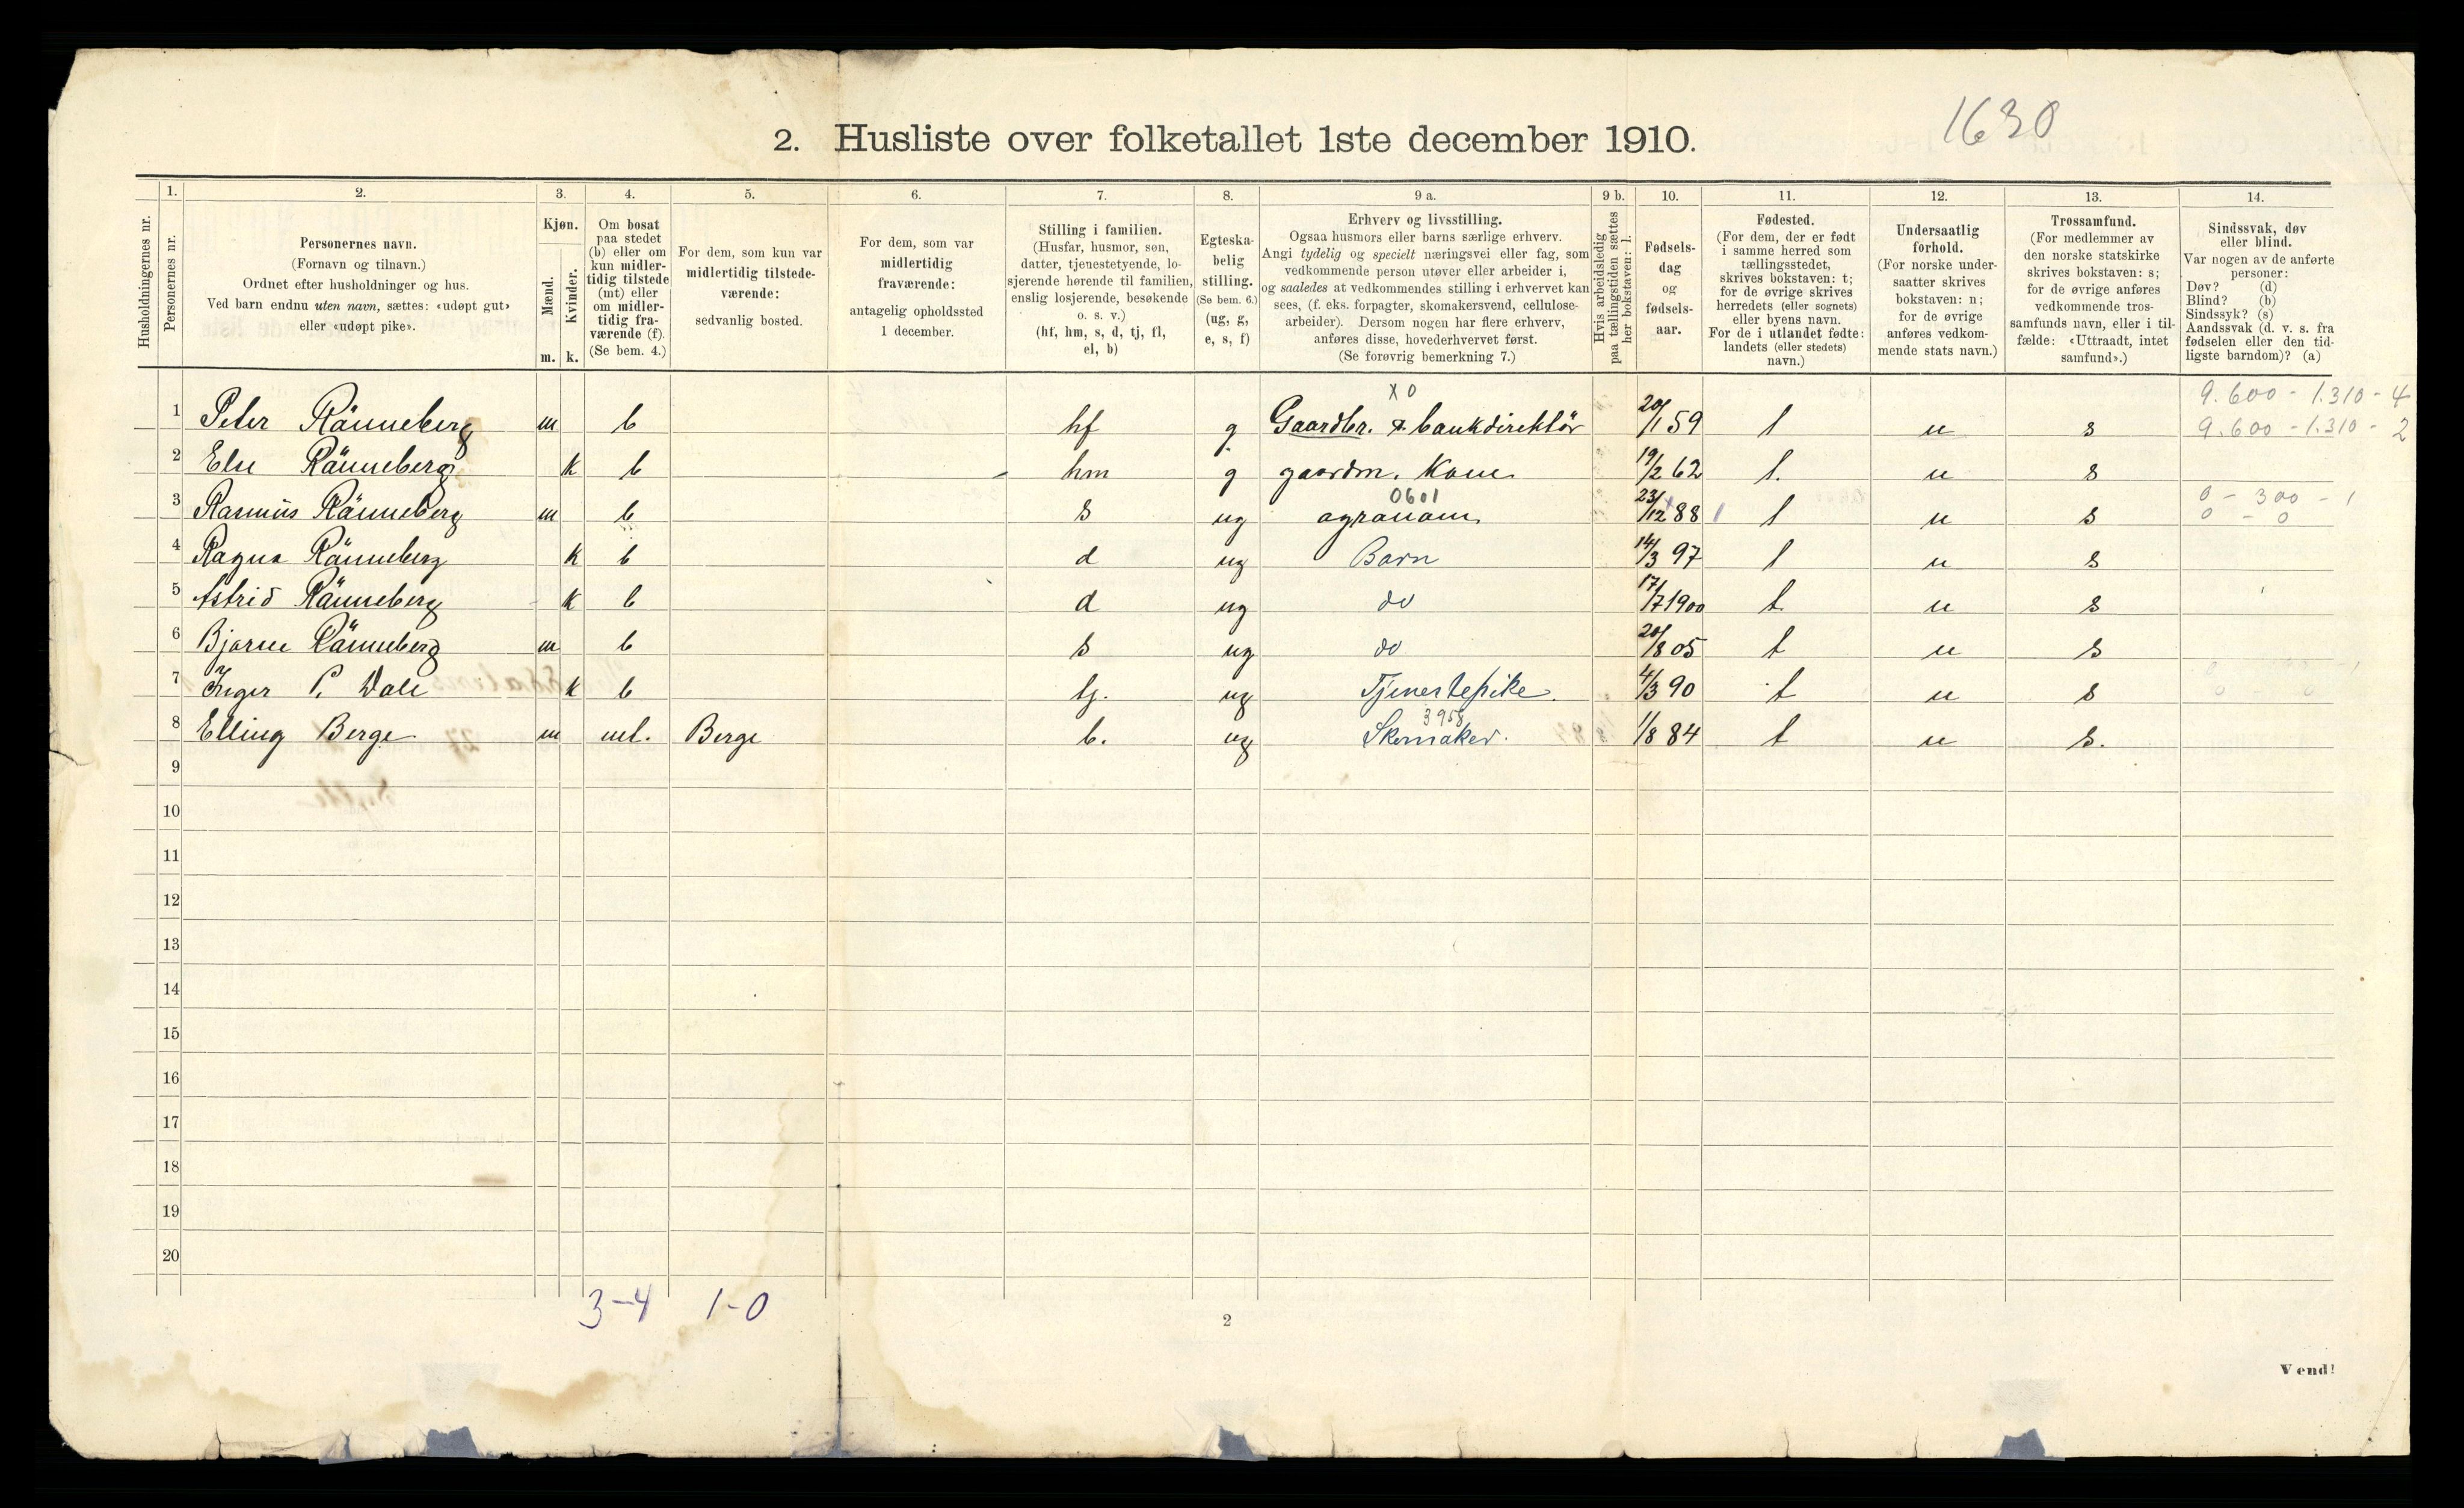 1630
2. Husliste over folketallet 1ste december 1910.
Husholdningernes nr.
1.
Personernes nr.
2.
Personernes navn.
(Fornavn og tilnavn.)
Ordnet efter husholdninger og hus.
Ved barn endnu uten navn, sættes: «udøpt gut»
eller «udøpt pike».
3.
Kjøn.
Mænd.
Kvinder.
m. k.
4.
Om bosat
paa stedet
(b) eller om
kun midler-
tidig tilstede
(mt) eller
om midler-
tidig fra-
værende (f).
(Se bem. 4.)
5.
For dem, som kun var
midlertidig tilstede-
værende:
sedvanlig bosted.
6.
For dem, som var
midlertidig
fraværende:
antagelig opholdssted
1 december.
7.
Stilling i familien.
(Husfar, husmor, søn,
datter, tjenestetyende, lo-
sjerende hørende til familien,
enslig losjerende, besøkende
o. s. v.)
(hf, hm, s, d, tj, fl,
el, b)
8.
Egteska-
belig
stilling.
(Se bem. 6.)
(ug, g,
e, s, f)
9 a.
Erhverv og livsstilling.
Ogsaa husmors eller barns særlige erhverv.
Angi tydelig og specielt næringsvei eller fag, som
vedkommende person utøver eller arbeider i,
og saaledes at vedkommendes stilling i erhvervet kan
sees, (f. eks. forpagter, skomakersvend, cellulose-
arbeider). Dersom nogen har flere erhverv,
anføres disse, hovederhvervet først.
(Se forøvrig bemerkning 7.)
9 b.
Hvis arbeidsledig
paa tællingstiden sættes
her bokstaven: l.
10.
Fødsels-
dag
og
fødsels-
aar.
11.
Fødested.
(For dem, der er født
i samme herred som
tællingsstedet,
skrives bokstaven: t;
for de øvrige skrives
herredets (eller sognets)
eller byens navn.
For de i utlandet fødte:
landets (eller stedets)
navn.)
12.
Undersaatlig
forhold.
(For norske under-
saatter skrives
bokstaven: n;
for de øvrige
anføres vedkom-
mende stats navn.)
13.
Trossamfund.
(For medlemmer av
den norske statskirke
skrives bokstaven: s;
for de øvrige anføres
vedkommende tros-
samfunds navn, eller i til-
fælde: «Uttraadt, intet
samfund».)
14.
Sindssvak, døv
eller blind.
Var nogen av de anførte
personer:
Døv? (d)
Blind? (b)
Sindssyk? (s)
Aandssvak (d. v. s. fra
fødselen eller den tid-
ligste barndom)? (a)
X 0 9.600 - 1.310 - 4
1 Peter Rönneberg m b hf g Gaardbr. & bankdirektör 20/1 59 t n s 9.600 - 1.310 - 2
2 Else Rönneberg k b hm g gaardm. Kone 19/2 62 t. n s
0601 0 - 300 - 1
3 Rasmus Rönneberg m b s ug agronom 23/12 88 t n s 0 - 0
4 Ragna Rönneberg k b d ug Barn 14/3 97 t n s
5 Astrid Rönneberg k b d ug do 17/7 1900 t n s
6 Bjarne Rönneberg m b s ug do 20/8 05 t n s
7 Inger P. Dale k b tj. ug Tjenestepike. 4/3 90 t n s
3958
8 Elling Berge m mt. Berge b. ug Skomaker. 1/8 84 t n s.
9
10
11
12
13
14
15
16
17
18
19
20
3-4 1-0
2
Vend!